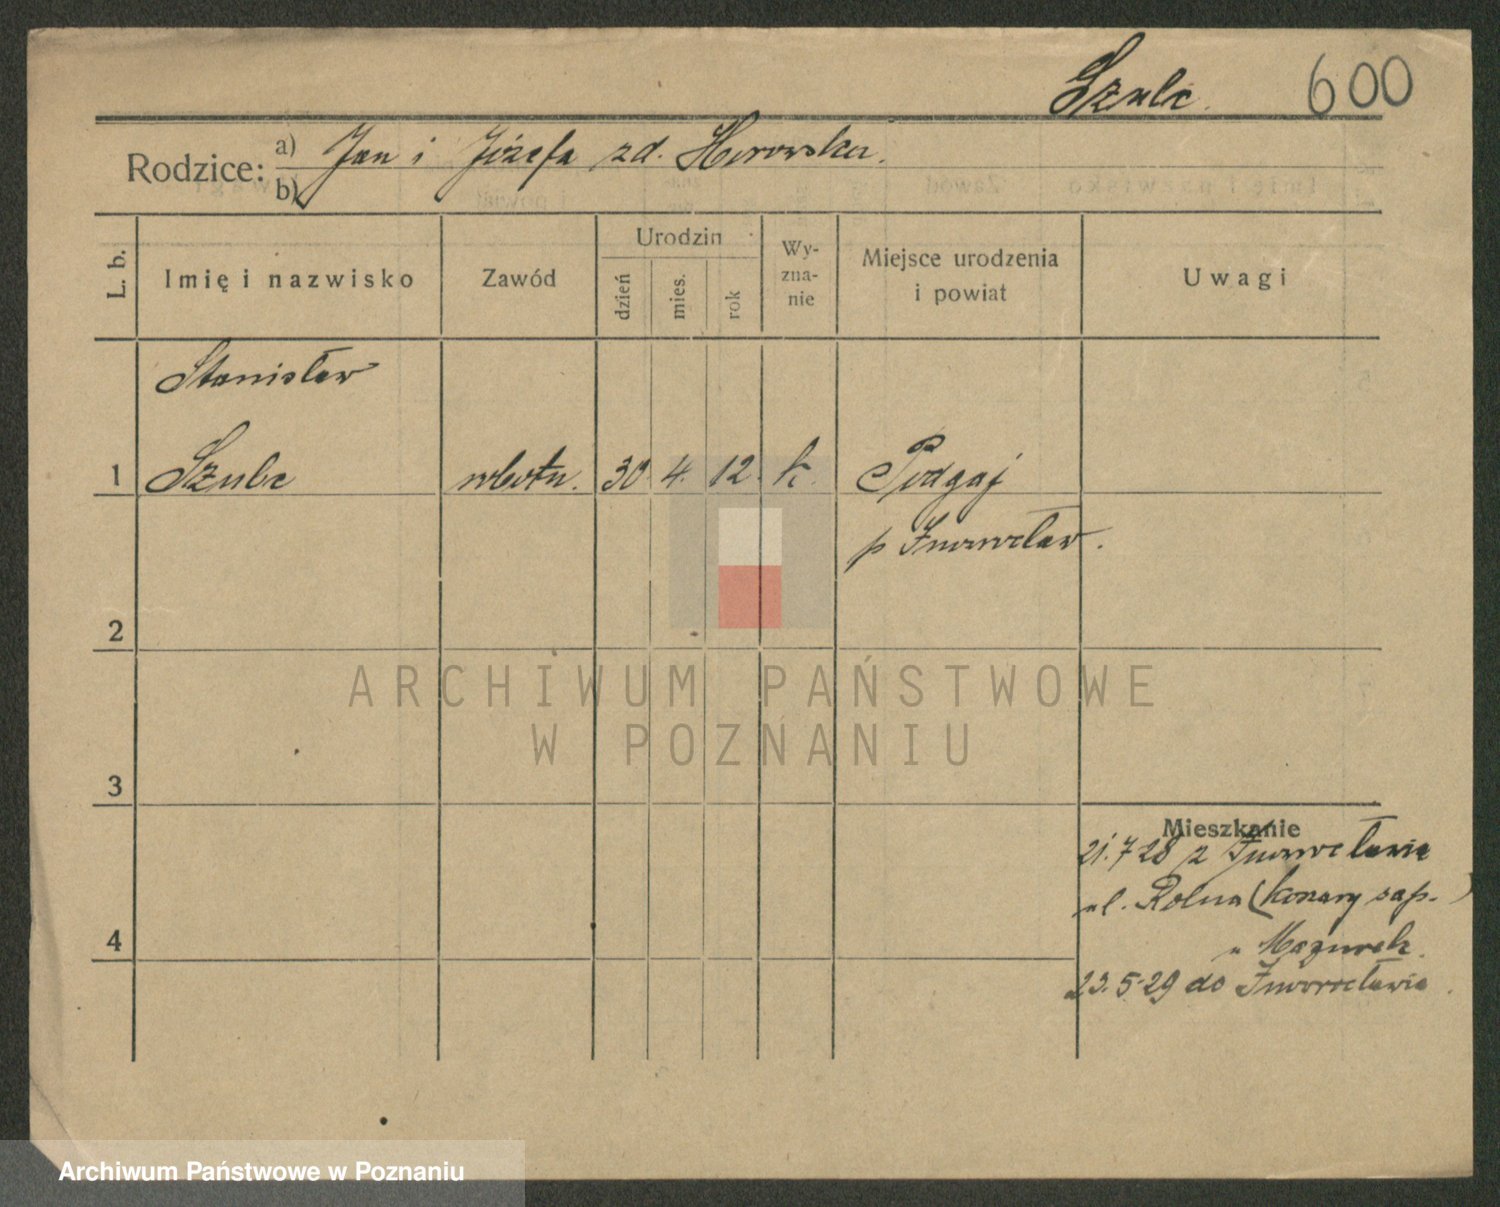 Szulc. 600
Rodzice: a) Jan i Józefa zd. Horowska.
b)
L. b.
Imię i nazwisko
Zawód
Urodzin
dzień
mies.
rok
Wy-
zna-
nie
Miejsce urodzenia
i powiat
Uwagi
Stanisław
1 Szulc robotn. 30. 4. 12. k. Podgaj
p Inowrocław.
2
3
4
Mieszkanie
21.7.28 z Inowrocławia
ul. Rolna (koszary sap.)
u Mazurek.
23.5.29 do Inowrocławia.
ARCHIWUM PAŃSTWOWE
W POZNANIU
Archiwum Państwowe w Poznaniu